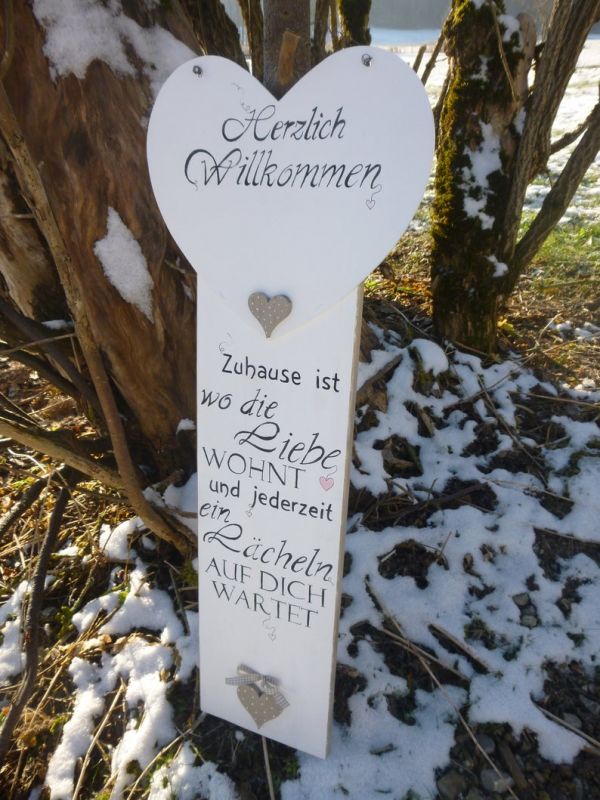 Herzlich
Willkommen
Zuhause ist
wo die
Liebe
WOHNT
und jederzeit
ein
Lächeln
AUF DICH
WARTET